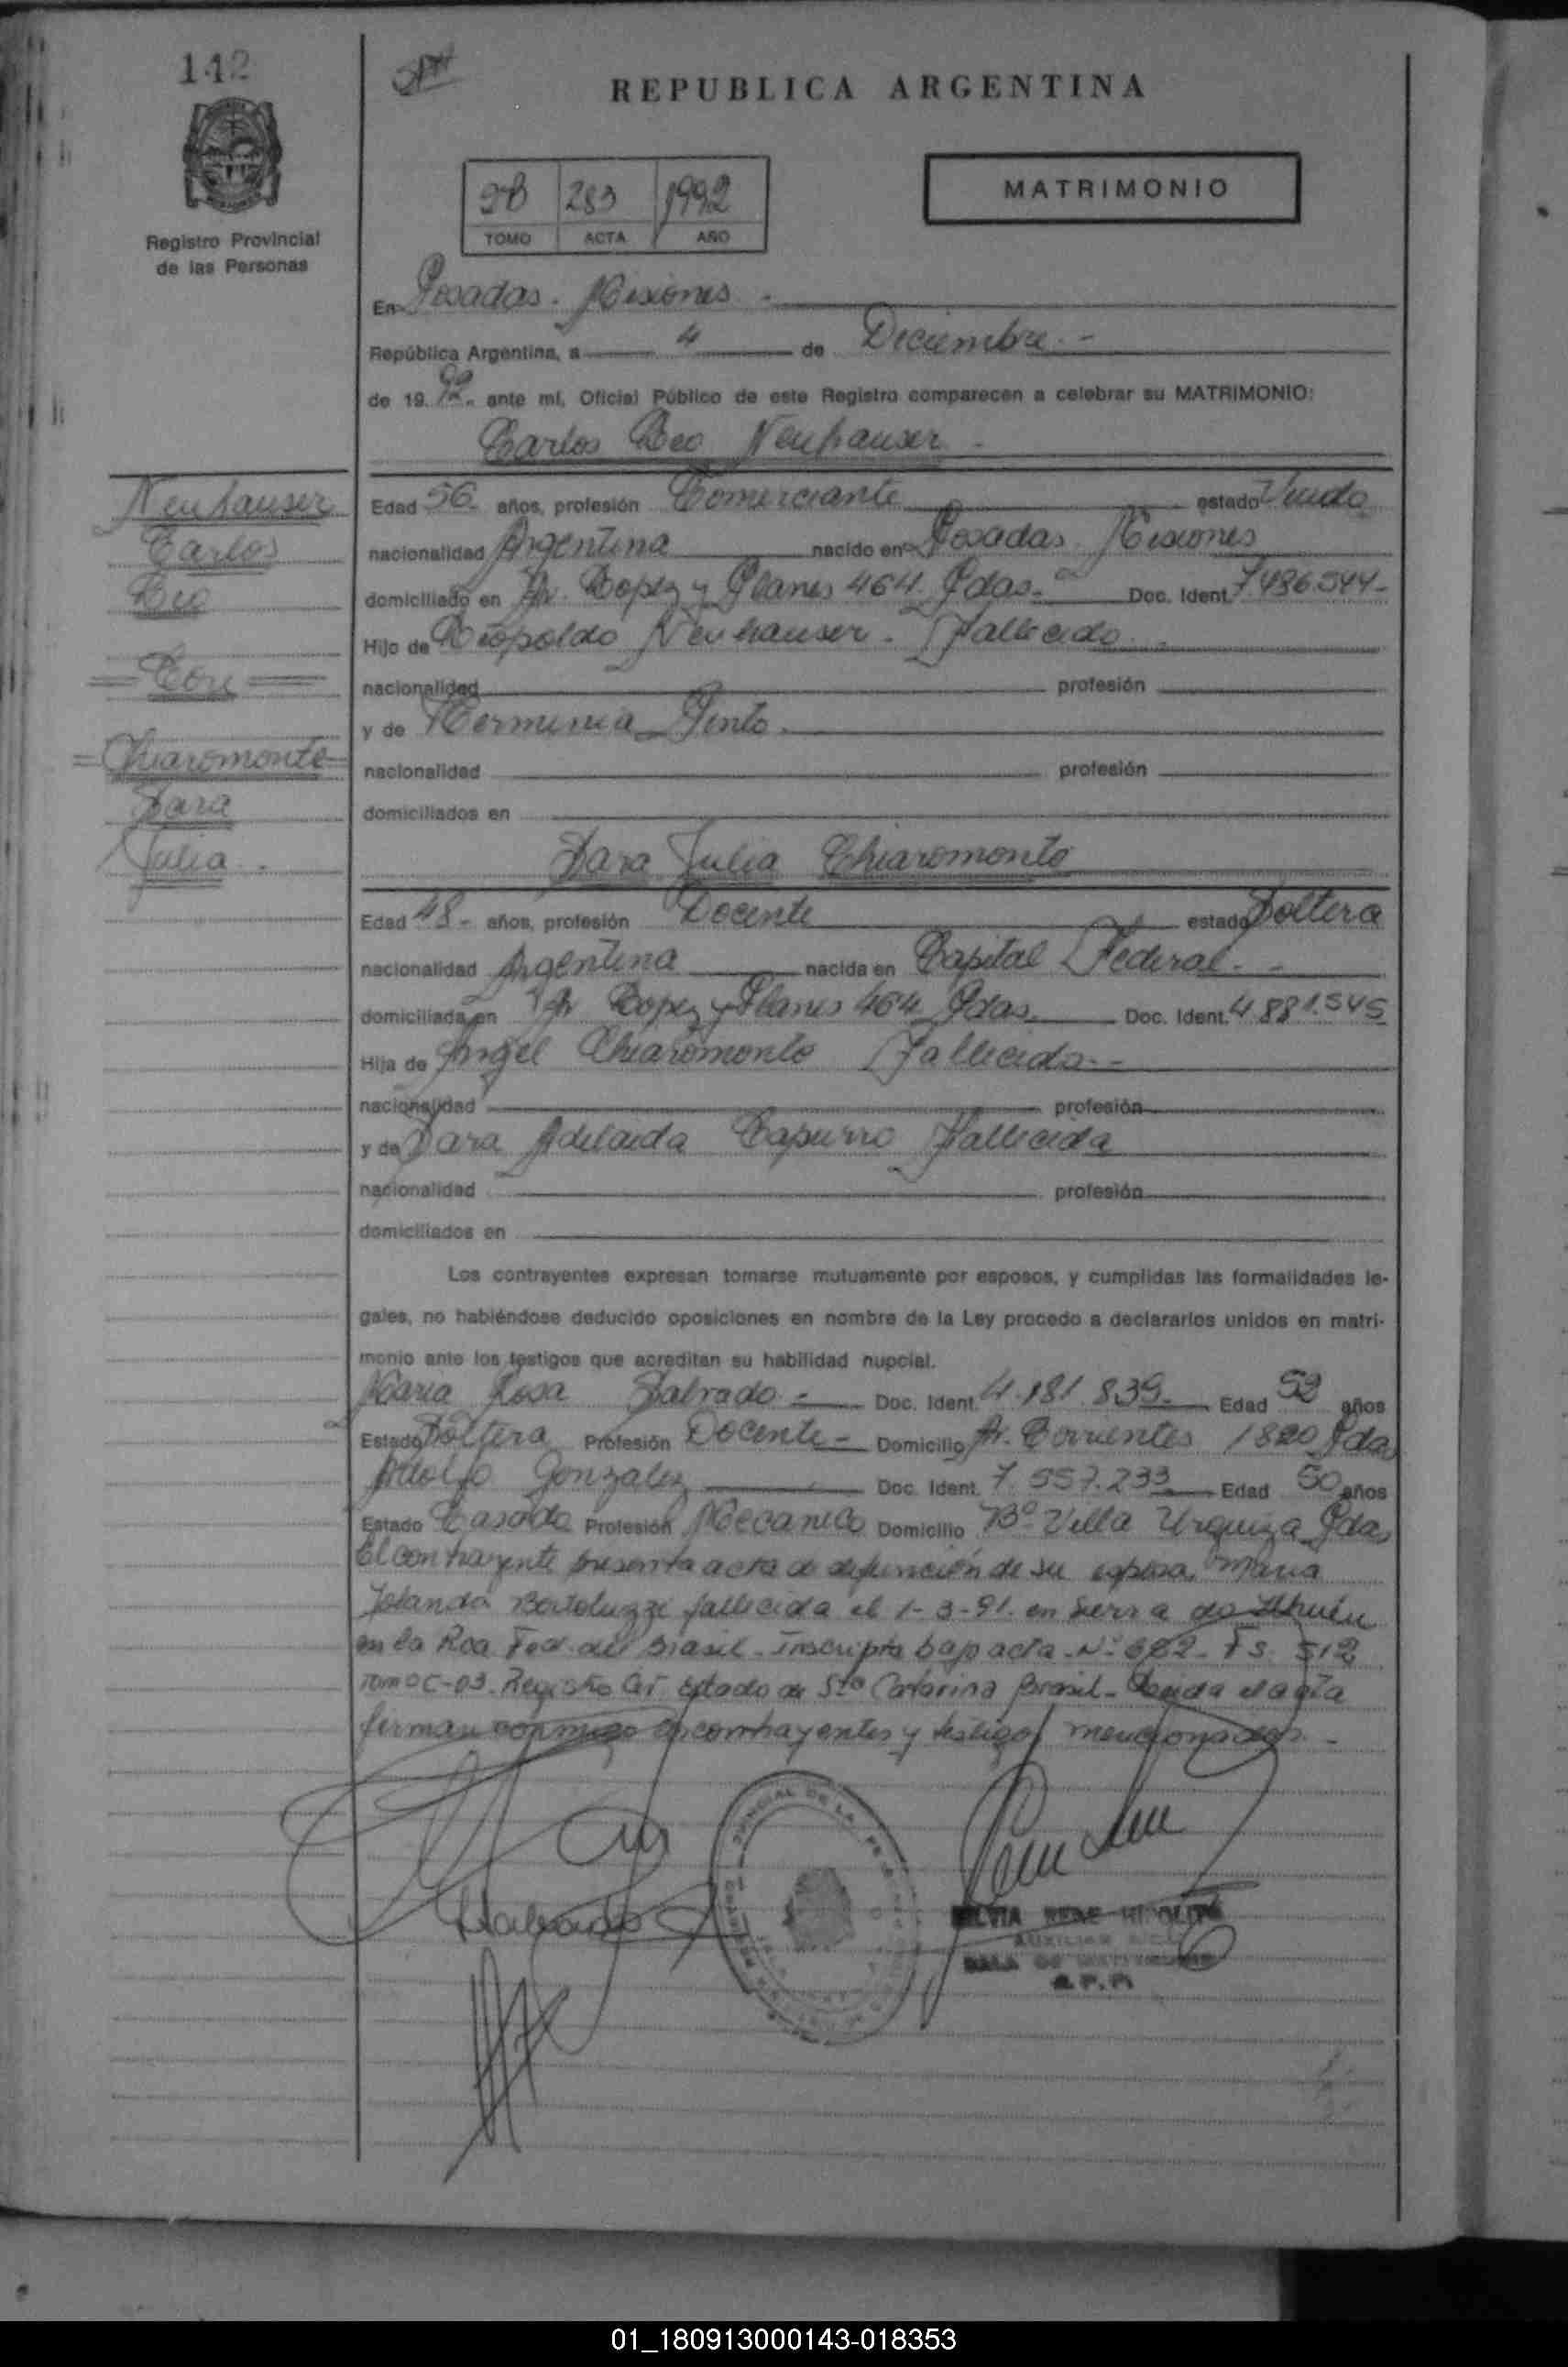 142
REPUBLICA ARGENTINA
283 1992
TOMO ACTA AÑO
MATRIMONIO
Registro Provincial
de las Personas
En Posadas. Misiones.
República Argentina, a 4 de Diciembre.-
de 19 92. ante mí, Oficial Público de este Registro comparecen a celebrar su MATRIMONIO:
Carlos Leo Neuhauser.-
Neuhauser
Carlos
Leo
= Con =
= Chiaromonte =
Sara
Julia.
Edad 56. años, profesión Comerciante estado Viudo
nacionalidad Argentina nacido en Posadas. Misiones
domiciliado en Av. Lopez y Planes 464. Pdas.- Doc. Ident. 7.486.544-
Hijo de Leopoldo Neuhauser. Fallecido.
nacionalidad profesión
y de Herminia Pinto.
nacionalidad profesión
domiciliados en
Sara Julia Chiaromonte
Edad 48- años, profesión Docente estado Soltera
nacionalidad Argentina nacida en Capital Federal.-
domiciliada en Av Lopez y Planes 464 Pdas. Doc. Ident. 4 881.545
Hija de Angel Chiaromonte Fallecido.-
nacionalidad profesión
y de Sara Adelaida Capurro Fallecida
nacionalidad profesión
domiciliados en
Los contrayentes expresan tomarse mutuamente por esposos, y cumplidas las formalidades le-
gales, no habiéndose deducido oposiciones en nombre de la Ley procedo a declararlos unidos en matri-
monio ante los testigos que acreditan su habilidad nupcial.
Maria Rosa Labrado- Doc. Ident. 4.181.839- Edad 52 años
Estado Soltera Profesión Docente- Domicilio Av. Corrientes 1820 Pdas
Adolfo Gonzalez Doc. Ident. 7.557.233 Edad 50 años
Estado Casado Profesión Mecanico Domicilio Bº Villa Urquiza Pdas
El contrayente presenta acta de defunción de su esposa Maria
Yolanda Bortoluzzi fallecida el 1-3-91. en Sierra do
en la Rca Fed. del Brasil- Inscripta bajo acta Nº 662- Fs. 512
Tomo C-03. Registro Civ. Estado de Sta Catarina Brasil- Leida el acta
firman conmigo los contrayentes y testigos mencionados.-
SILVIA RENE HIPOLITO
AUXILIAR
SALA DE MATRIMONIOS
R.P.P.
01_180913000143-018353